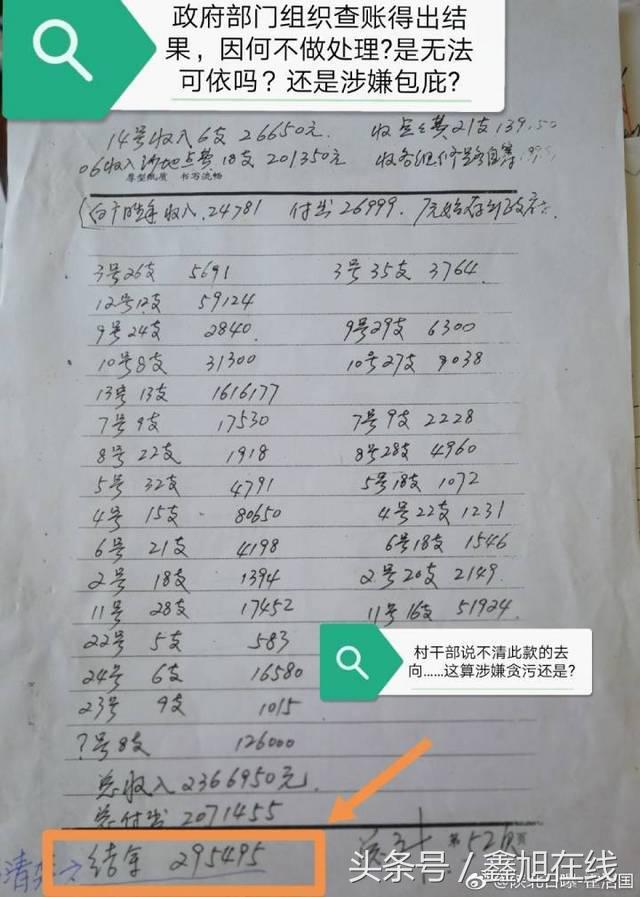 政府部门组织查账得出结
果，因何不做处理?是无法
可依吗？还是涉嫌包庇?
14号收入6支 26650元. 收 21支 139
06收入 地点费18支 201350元 收各组修路自筹
厚型纸质 书写流畅
收入.24781 付出26999.
3号26支 5691 3号35支 3764
12号12支 59124
9号24支 2840. 9号29支 6300
10号8支 31300 10号27支 9038
13号 13支 1616177
7号9支 17530 7号9支 2228
8号 22支 1918 8号28支 4960
5号 32支 4791 5号18支 1072
4号 15支 80650 4号22支 1231
6号 21支 4198 6号18支 1546
2号 18支 1394 2号20支 2149.
11号 28支 17452 11号16支 51924
22号 5支 583
24号 6支 16580
23号 9支 1015
?号8支 126000
村干部说不清此款的去
向……这算涉嫌贪污还是?
总收入2366950元.
总付出2071455
结余 295495
第52页
头条号/鑫旭在线